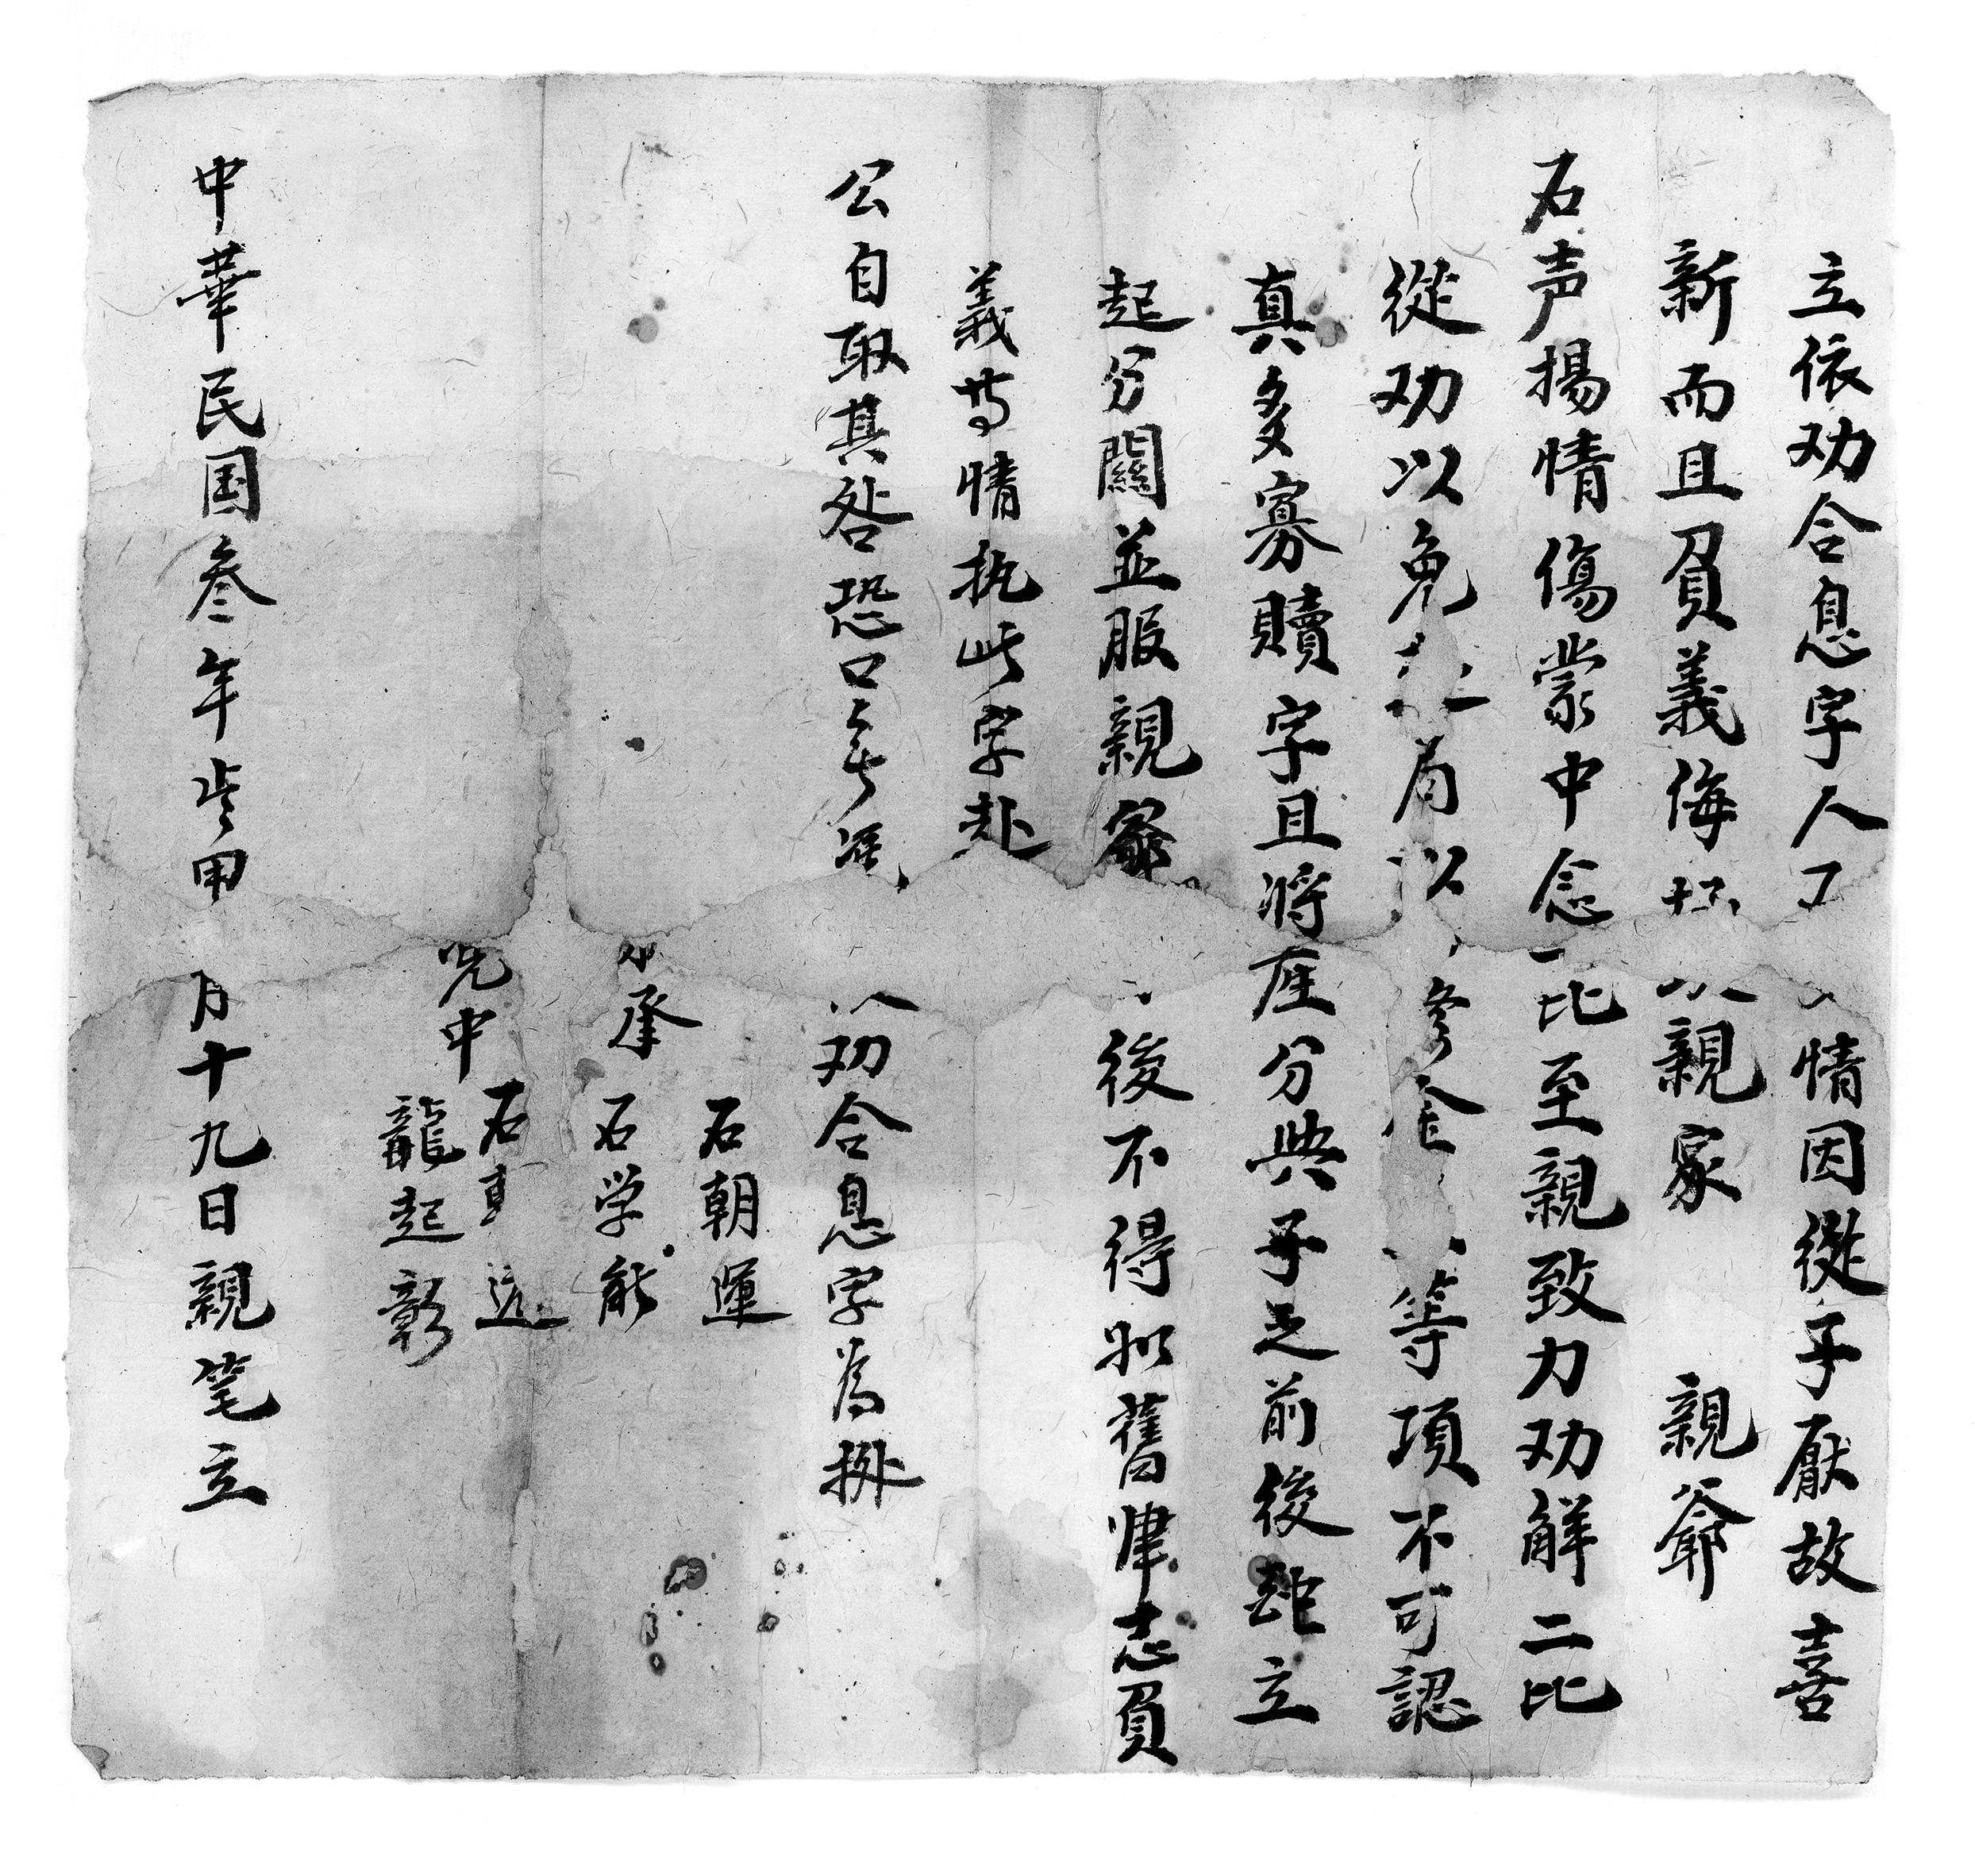 立依劝合息字人 情因從子厭故喜
新而且負義侮 親家 親爺
石声揚情傷蒙中念 比至親致力劝解二比
從劝以免 局以 等項不可認
真多寡贖字且將 分典子之前後 立
起分關並服親 後不得 舊 志負
義等情执此字赴
公自取其咎恐口无凭 劝合息字為
承 石朝運
石学能
凭中 石 远
龍起彰
中華民国叁年 甲 月十九日親笔立